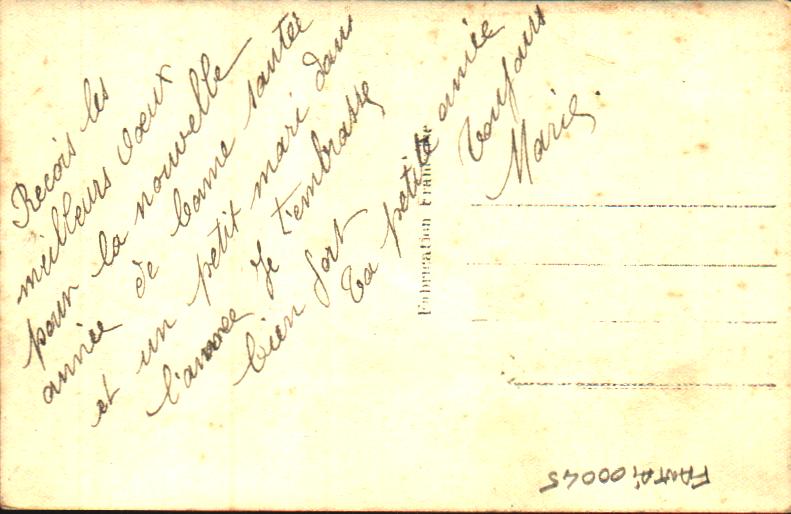 Recois les
meilleurs vœux
pour la nouvelle
année de bonne santée
et un petit mari dans
l'année Je t'embrasse
bien fort
Ta petite amie
Toujours
Marie.
Fabrication Française
FANTA,00045